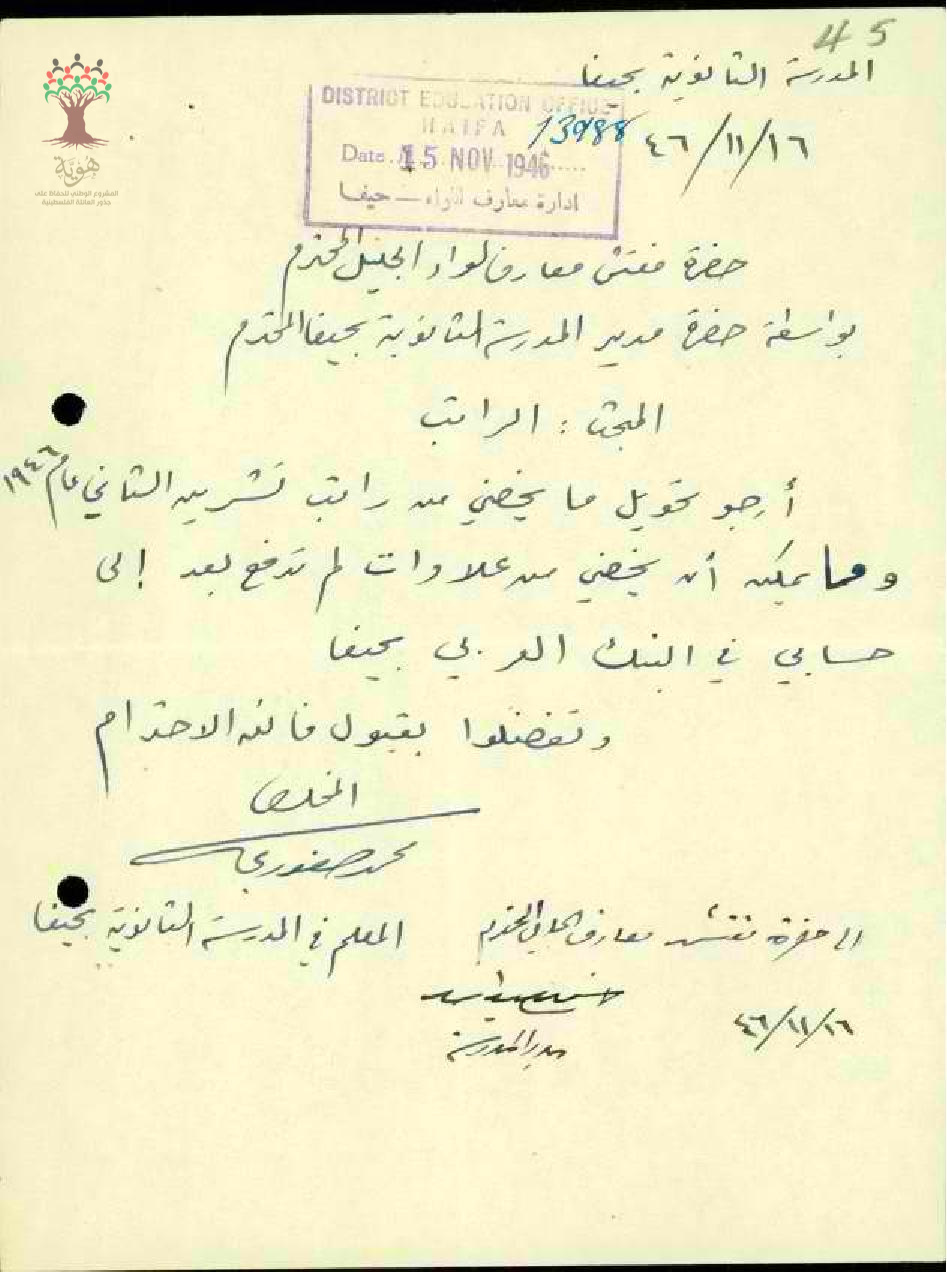 45
المدرسة الثانوية بحيفا
DISTRICT EDUCATION OFFICE
HAIFA
13988
Date 15 NOV 1946
ادارة معارف اللواء — حيفا
٤٦/١١/١٦
هوية
المشروع الوطني للحفاظ على
جذور العائلة الفلسطينية
حضرة مفتش معارف لواء الجليل المحترم
بواسطة حضرة مدير المدرسة الثانوية بحيفا المحترم
المبحث : الراتب
أرجو تحويل ما يخصني من راتب تشرين الثاني عام ١٩٤٦
وما يمكن أن يخصني من علاوات لم تدفع بعد إلى
حسابي في البنك العربي بحيفا
وتفضلوا بقبول فائق الاحترام
المخلص
محمد صفوري
المعلم في المدرسة الثانوية بحيفا
الى حضرة مفتش معارف المحترم
مدير المدرسة
٤٦/١١/١٦